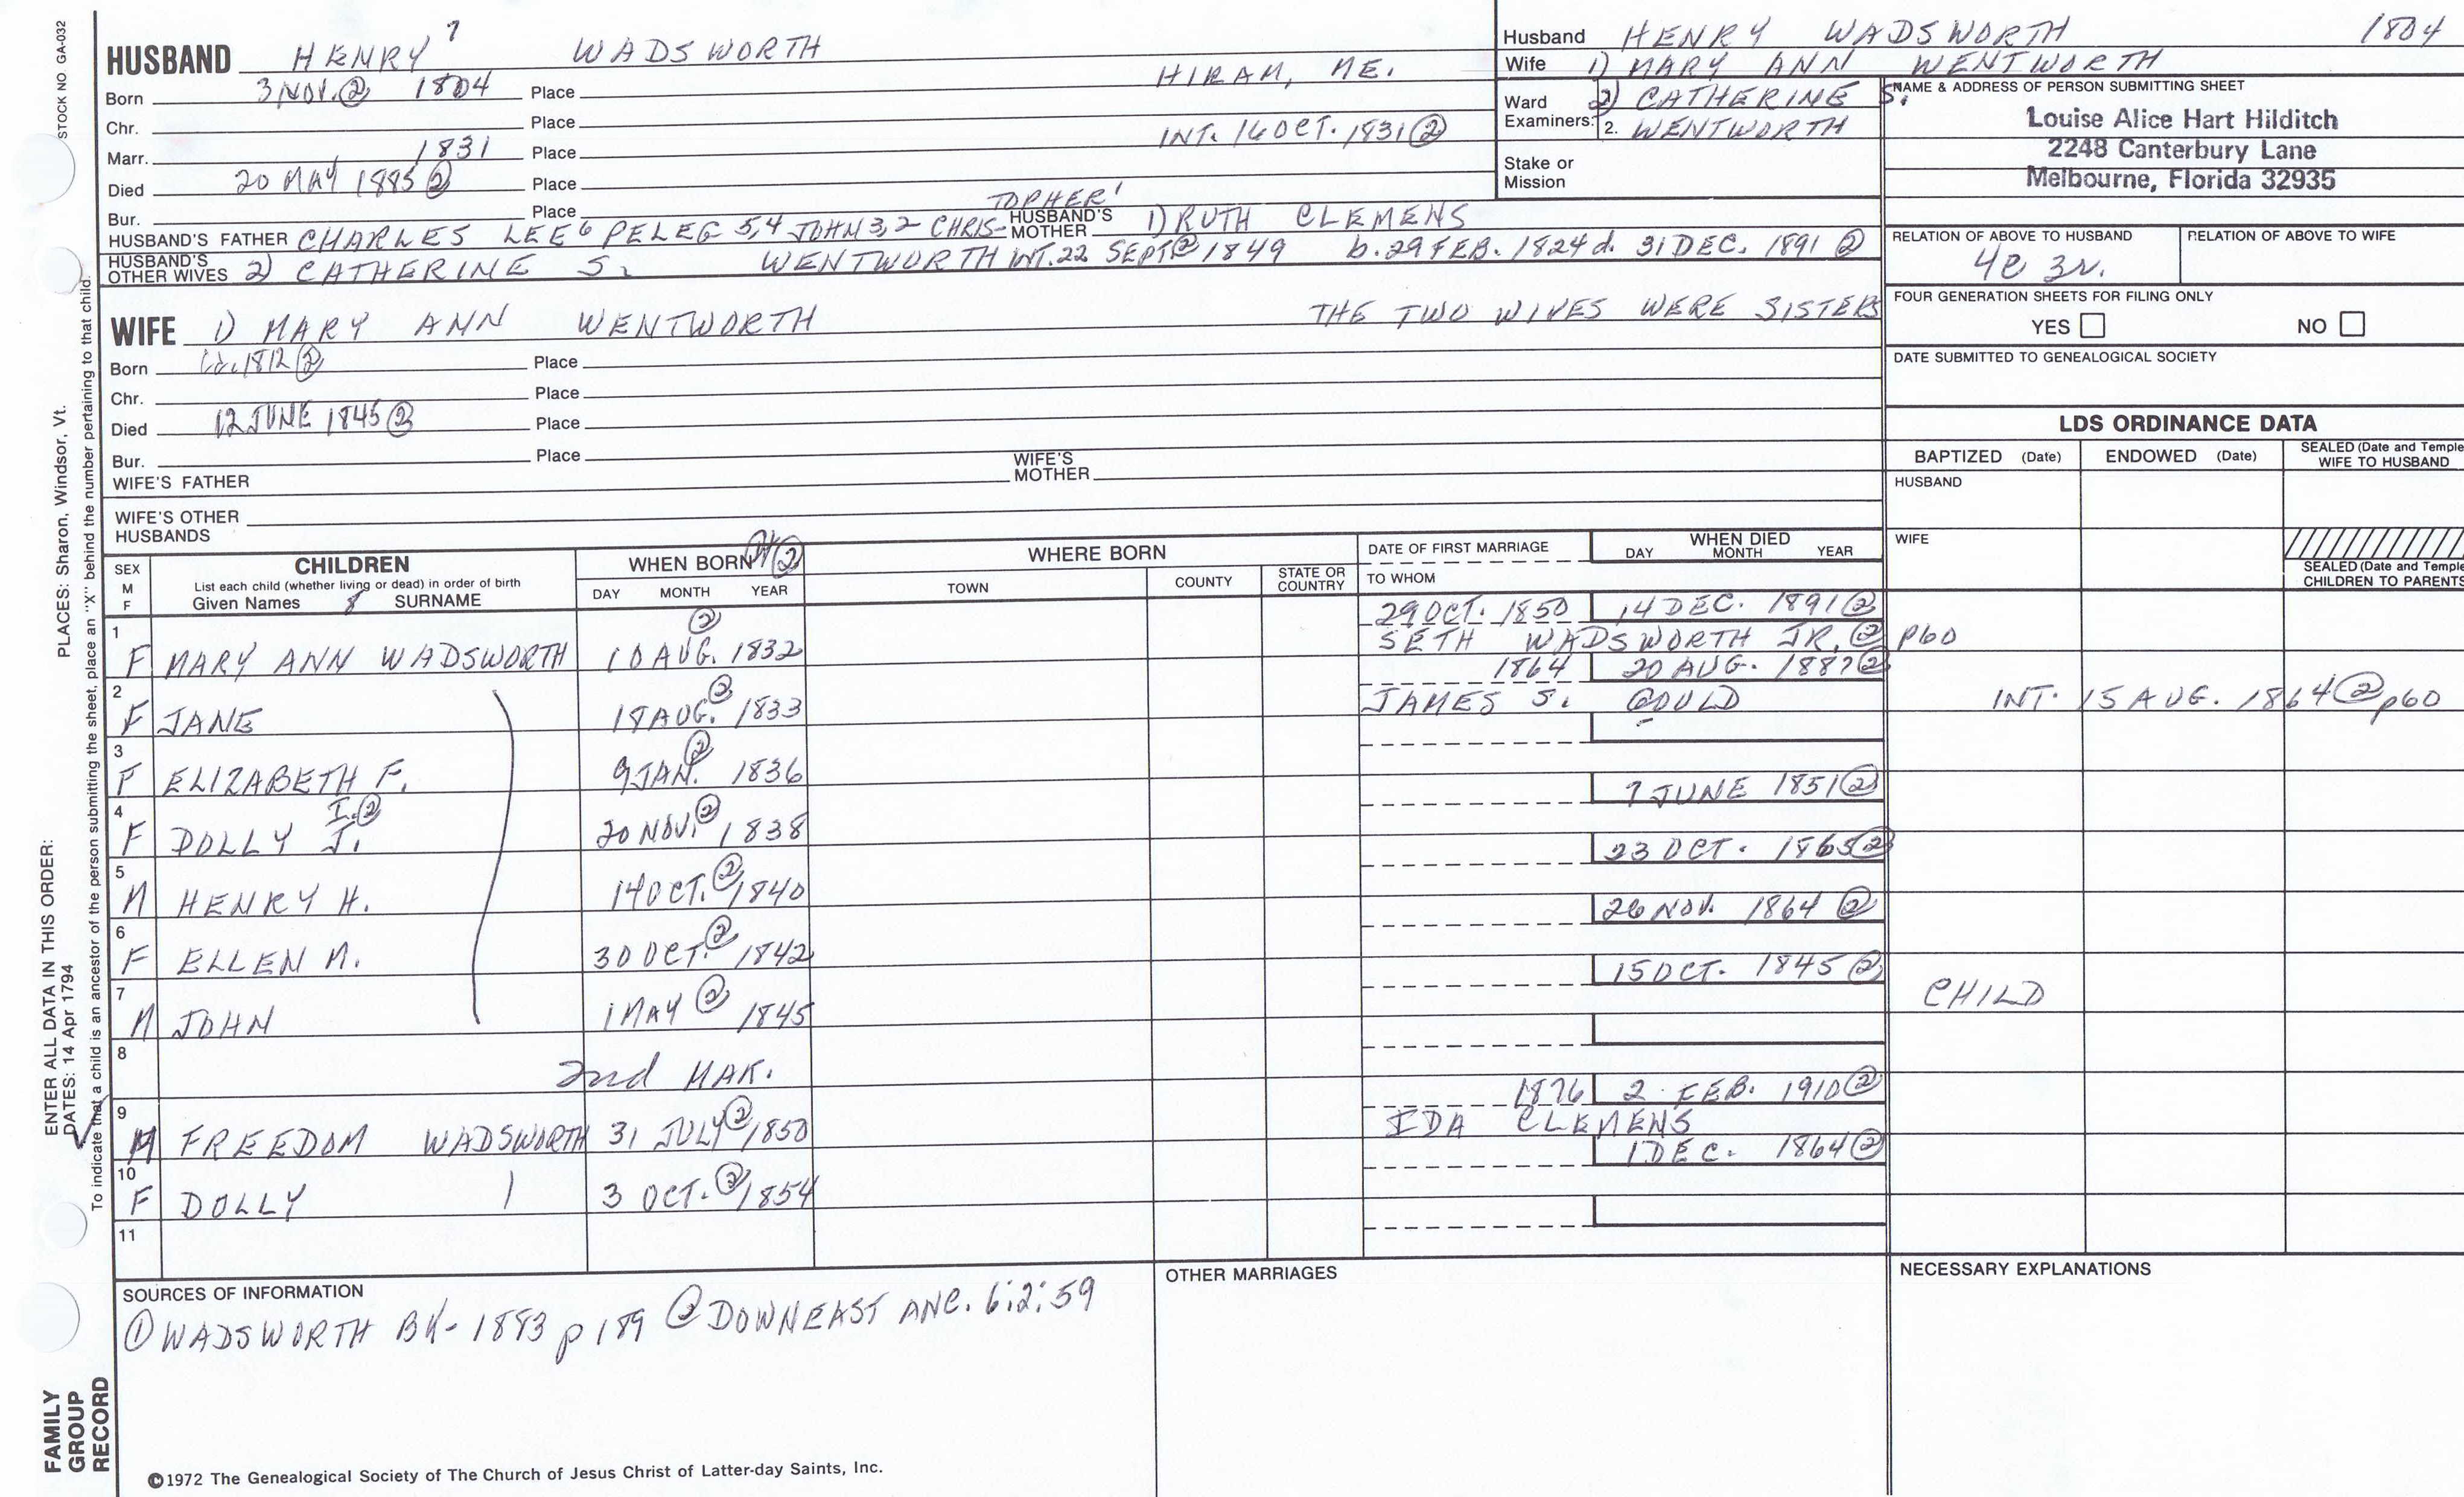 HUSBAND HENRY 7 WADSWORTH
Born 3 NOV. ② 1804 Place HIRAM, ME.
Chr. Place
Marr. 1831 Place INT. 16 OCT. 1831 ②
Died 20 MAY 1885 ② Place
Bur. Place
HUSBAND'S FATHER CHARLES LEE 6 PELEG 5,4 JOHN 3,2 CHRIS-TOPHER 1 HUSBAND'S MOTHER 1) RUTH CLEMENS
HUSBAND'S OTHER WIVES 2) CATHERINE S. WENTWORTH INT. 22 SEPT ② 1849 b. 29 FEB. 1824 d. 31 DEC. 1891 ②
WIFE 1) MARY ANN WENTWORTH THE TWO WIVES WERE SISTERS
Born ca. 1812 ② Place
Chr. Place
Died 12 JUNE 1845 ② Place
Bur. Place
WIFE'S FATHER WIFE'S MOTHER
WIFE'S OTHER HUSBANDS
Husband HENRY WADSWORTH 1804
Wife 1) MARY ANN WENTWORTH
Ward 2) CATHERINE S.
Examiners: 2. WENTWORTH
Stake or Mission
NAME & ADDRESS OF PERSON SUBMITTING SHEET
Louise Alice Hart Hilditch
2248 Canterbury Lane
Melbourne, Florida 32935
RELATION OF ABOVE TO HUSBAND RELATION OF ABOVE TO WIFE
4c 3r.
FOUR GENERATION SHEETS FOR FILING ONLY
YES NO
DATE SUBMITTED TO GENEALOGICAL SOCIETY
LDS ORDINANCE DATA
BAPTIZED (Date) ENDOWED (Date) SEALED (Date and Temple WIFE TO HUSBAND
HUSBAND
WIFE
SEALED (Date and Temple CHILDREN TO PARENTS
SEX M F
CHILDREN
List each child (whether living or dead) in order of birth
Given Names 8 SURNAME
WHEN BORN ②
DAY MONTH YEAR
WHERE BORN
TOWN COUNTY STATE OR COUNTRY
DATE OF FIRST MARRIAGE
TO WHOM
WHEN DIED
DAY MONTH YEAR
1 F MARY ANN WADSWORTH 10 AUG. ② 1832 29 OCT. 1850 14 DEC. 1891 ②
SETH WADSWORTH JR. ② p60
2 F JANE 18 AUG. ② 1833 1864 20 AUG. 1887 ②
JAMES S. GOULD INT. 15 AUG. 1864 ② p60
3 F ELIZABETH F. 9 JAN. ② 1836
4 F DOLLY J. I. ② 20 NOV. ② 1838 7 JUNE 1851 ②
5 M HENRY H. 14 OCT. ② 1840 23 OCT. 1865 ②
6 F ELLEN M. 30 OCT. ② 1842 26 NOV. 1864 ②
7 M JOHN 1 MAY ② 1845 15 OCT. 1845 ② CHILD
8 2nd MAR.
9 M FREEDOM WADSWORTH 31 JULY ② 1850 1876 2 FEB. 1910 ②
IDA CLEMENS
10 F DOLLY 3 OCT. ② 1854 1 DEC. 1864 ②
11
SOURCES OF INFORMATION
① WADSWORTH BK- 1883 p 189 ② DOWNEAST ANC. 6:2:59
OTHER MARRIAGES
NECESSARY EXPLANATIONS
©1972 The Genealogical Society of The Church of Jesus Christ of Latter-day Saints, Inc.
STOCK NO GA-032
PLACES: Sharon, Windsor, Vt.
ENTER ALL DATA IN THIS ORDER:
DATES: 14 Apr 1794
To indicate that a child is an ancestor of the person submitting the sheet, place an "X" behind the number pertaining to that child.
FAMILY
GROUP
RECORD